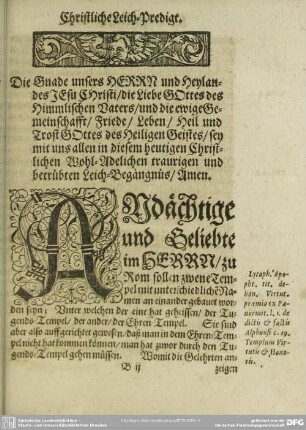 Christliche Leich-Predigt.
Die Gnade unsers HERRN und Heylan-
des JEsu CHristi/ die Liebe GOttes des
Himmlischen Vaters/ und die ewige Ge-
meinschafft/ Friede/ Leben/ Heil und
Trost GOttes des Heiligen Geistes/ sey
mit uns allen in diesem heutigen Christ-
lichen Wohl-Adelichen traurigen und
betrübten Leich-Begängnüs/ Amen.
ANdächtige
und Geliebte
im HERRN/ zu
Rom sollen zwene Tem-
pel mit unterschiedlichē Na-
men an einander gebauet wor-
den seyn; Unter welchen der eine hat geheissen/ der Tu-
gends-Tempel/ der ander/ der Ehren-Tempel. Sie sind
aber also auffgerichtet gewesen/ daß man in dem Ehren-Tem-
pel nicht hat kommen können/ man hat zuvor durch den Tu-
gends-Tempel gehen müssen. Womit die Gelehrten an-
B ij zeigen
Lycosth. Apo-
pht. tit. de
bon. Virtut.
premio ex Pa-
normit. l. 1. de
dictis & factis
Alphonsi c. 19.
Templum Vir-
tutis & Hono-
ris.